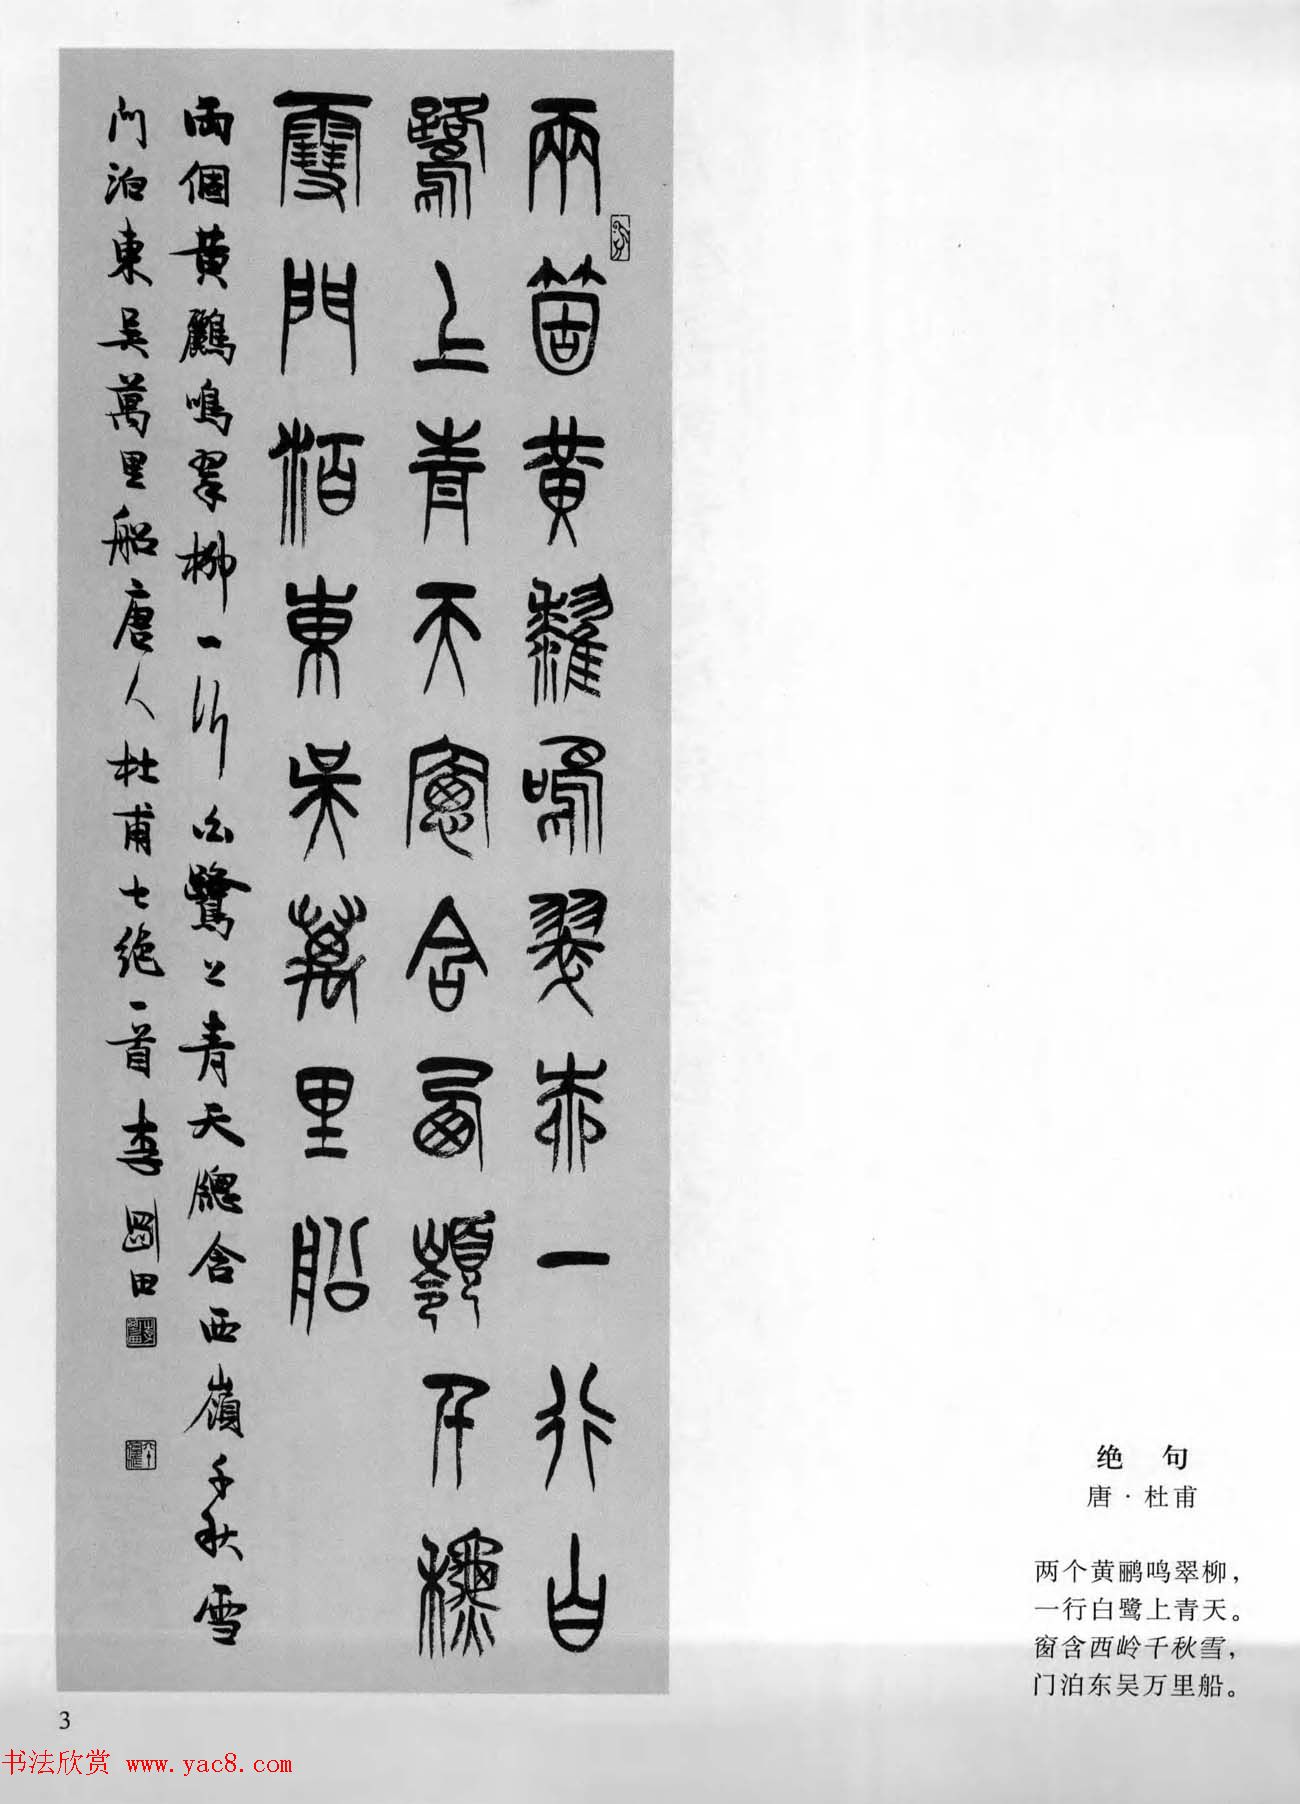 兩箇黃鸝鳴翠柳一行白
鷺上青天窗含西嶺千秋
雪門泊東吳萬里船
兩個黃鸝鳴翠柳一行白鷺上青天窓含西嶺千秋雪
門泊東吳萬里船唐人杜甫七絕一首李剛田
绝 句
唐·杜甫
两个黄鹂鸣翠柳，
一行白鹭上青天。
窗含西岭千秋雪，
门泊东吴万里船。
3
书法欣赏 www.yac8.com